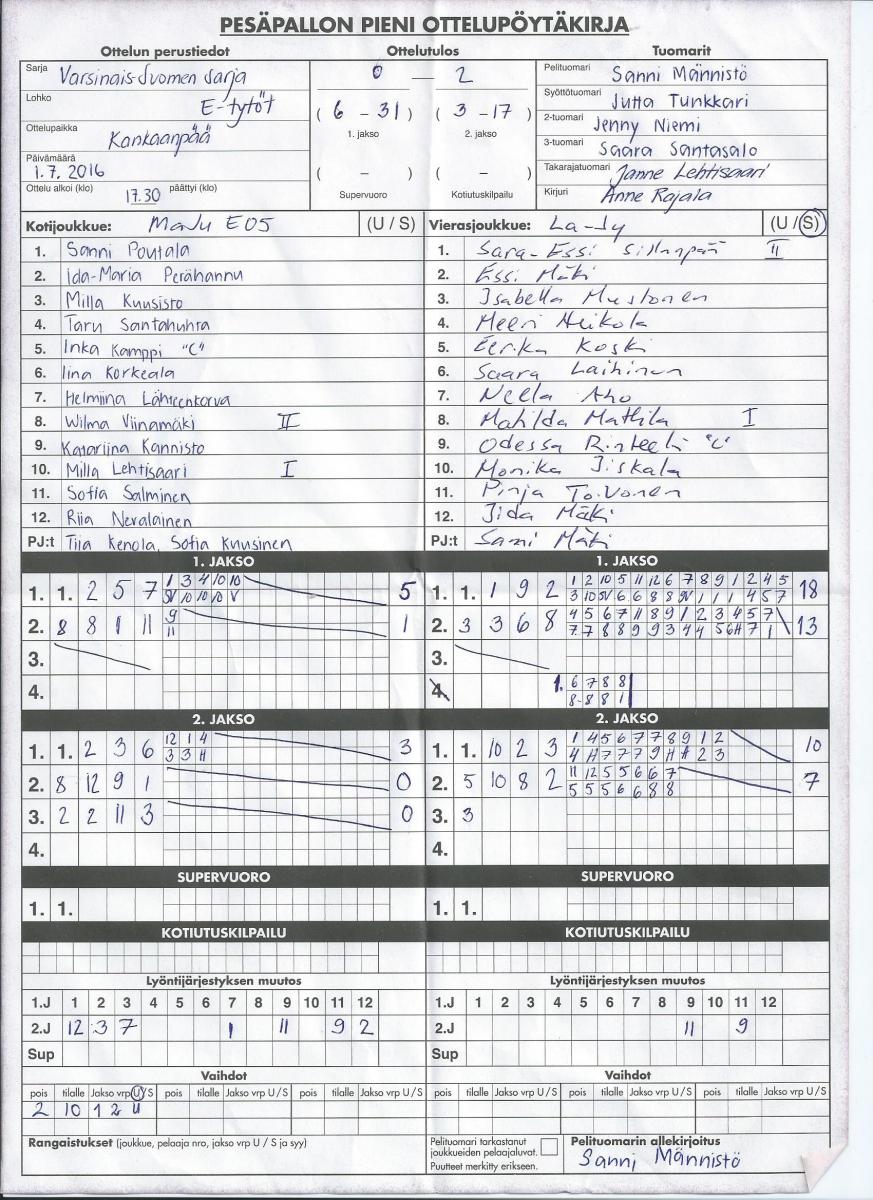 PESÄPALLON PIENI OTTELUPÖYTÄKIRJA
Ottelun perustiedot Ottelutulos Tuomarit
Sarja Varsinais-Suomen sarja
Lohko E-tytöt
Ottelupaikka Kankaanpää
Päivämäärä 1.7.2016
Ottelu alkoi (klo) 17.30 päättyi (klo)
0 — 2
( 6 - 31 ) ( 3 - 17 )
1. jakso 2. jakso
( - ) ( - )
Supervuoro Kotiutuskilpailu
Pelituomari Sanni Männistö
Syöttötuomari Jutta Tunkkari
2-tuomari Jenny Niemi
3-tuomari Saara Santasalo
Takarajatuomari Janne Lehtisaari
Kirjuri Anne Rajala
Kotijoukkue: ManU E05 (U / S)
1. Sanni Poutala
2. Ida-Maria Perähannu
3. Milla Kuusisto
4. Taru Santahuhta
5. Inka Kamppi "C"
6. Iina Korkeala
7. Helmiina
8. Wilma Viinamäki II
9. Katariina Kannisto
10. Milla Lehtisaari I
11. Sofia Salminen
12. Riia Nevalainen
PJ:t Tiia Kenola, Sofia Kuusinen
Vierasjoukkue: La-Jy (U / S)
1. Sara-Essi Sillanpää II
2. Essi Mäki
3. Isabella Mustonen
4. Meeri Heikola
5. Eerika Koski
6. Saara Laihinen
7. Neella Aho
8. Matilda Mattila I
9. Odessa "C"
10. Monika Jiskala
11. Pinja Toivonen
12. Iida Mäki
PJ:t Sami Mäki
1. JAKSO 1. JAKSO
1. 1. 2 5 7 1 3 4 10 10 5
SV 10 10 10 V
2. 8 8 1 11 9 1
11
3.
4.
1. 1. 1 9 2 1 2 10 5 11 12 6 7 8 9 1 2 4 5 18
3 10 SV 6 6 8 8 SV 1 1 1 4 5 7
2. 3 3 6 8 4 5 6 7 11 8 9 1 2 3 4 5 7 13
7 7 8 8 9 9 3 4 4 5 6H 7 1
3.
4. 1. 6 7 8 8
8 8 8 1
2. JAKSO 2. JAKSO
1. 1. 2 3 6 12 1 4 3
3 3 H
2. 8 12 9 1 0
3. 2 2 11 3 0
4.
1. 1. 10 2 3 1 4 5 6 7 7 8 9 1 2 10
4 H 7 7 7 9 H H 2 3
2. 5 10 8 2 11 12 5 5 6 6 7 7
5 5 5 6 6 8 8
3. 3
4.
SUPERVUORO SUPERVUORO
1. 1. 1. 1.
KOTIUTUSKILPAILU KOTIUTUSKILPAILU
Lyöntijärjestyksen muutos Lyöntijärjestyksen muutos
1.J 1 2 3 4 5 6 7 8 9 10 11 12 1.J 1 2 3 4 5 6 7 8 9 10 11 12
2.J 12 3 7 1 11 9 2 2.J 11 9
Sup Sup
Vaihdot Vaihdot
pois tilalle Jakso vrp U / S pois tilalle Jakso vrp U / S pois tilalle Jakso vrp U / S pois tilalle Jakso vrp U / S pois tilalle Jakso vrp U / S pois tilalle Jakso vrp U / S
2 10 1 2 U
Rangaistukset (joukkue, pelaaja nro, jakso vrp U / S ja syy)
Pelituomari tarkastanut
joukkueiden pelaajaluvat.
Puutteet merkitty erikseen.
Pelituomarin allekirjoitus
Sanni Männistö